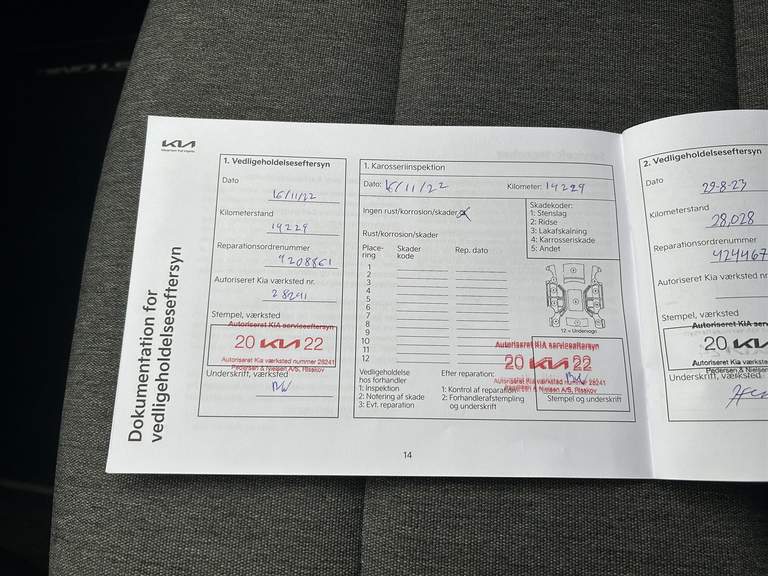 KIA
Dokumentation for
vedligeholdelseseftersyn
1. Vedligeholdelseseftersyn
Dato
16/11/22
Kilometerstand
14229
Reparationsordrenummer
Autoriseret Kia værksted nr.
28241
Stempel, værksted
Autoriseret KIA serviceeftersyn
20 KIA 22
Autoriseret Kia værksted nummer 28241
Pedersen & Nielsen A/S, Risskov
Underskrift, værksted
1. Karosseriinspektion
Dato: 16/11/22 Kilometer: 14229
Ingen rust/korrosion/skader
Rust/korrosion/skader
Place-
ring
Skader
kode
Rep. dato
1
2
3
4
5
6
7
8
9
10
11
12
Skadekoder:
1: Stenslag
2: Ridse
3: Lakafskalning
4: Karrosseriskade
5: Andet
12 = Undervogn
Vedligeholdelse
hos forhandler
1: Inspektion
2: Notering af skade
3: Evt. reparation
Efter reparation:
1: Kontrol af reparation
2: Forhandlerafstempling
og underskrift
Autoriseret KIA serviceeftersyn
20 KIA 22
Autoriseret Kia værksted nummer 28241
Pedersen & Nielsen A/S, Risskov
Stempel og underskrift
14
2. Vedligeholdelseseftersyn
Dato
29-8-23
Kilometerstand
28,028
Reparationsordrenummer
424467
Autoriseret Kia værksted
Stempel, værksted
Autoriseret KIA
20 KI
Pedersen & Nielsen
Underskrift, værksted